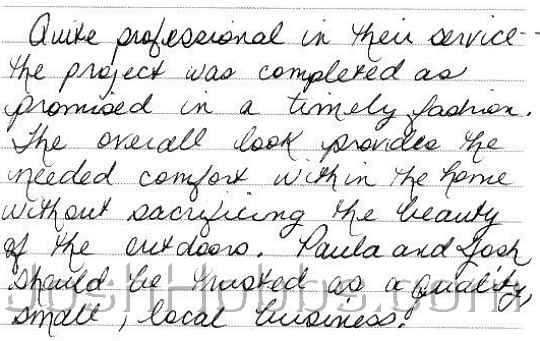 Quite professional in their service--
the project was completed as
promised in a timely fashion.
The overall look provides the
needed comfort within the home
without sacrificing the beauty
of the outdoors. Paula and Josh
should be trusted as a quality,
small, local business.
JoshHobbs.com